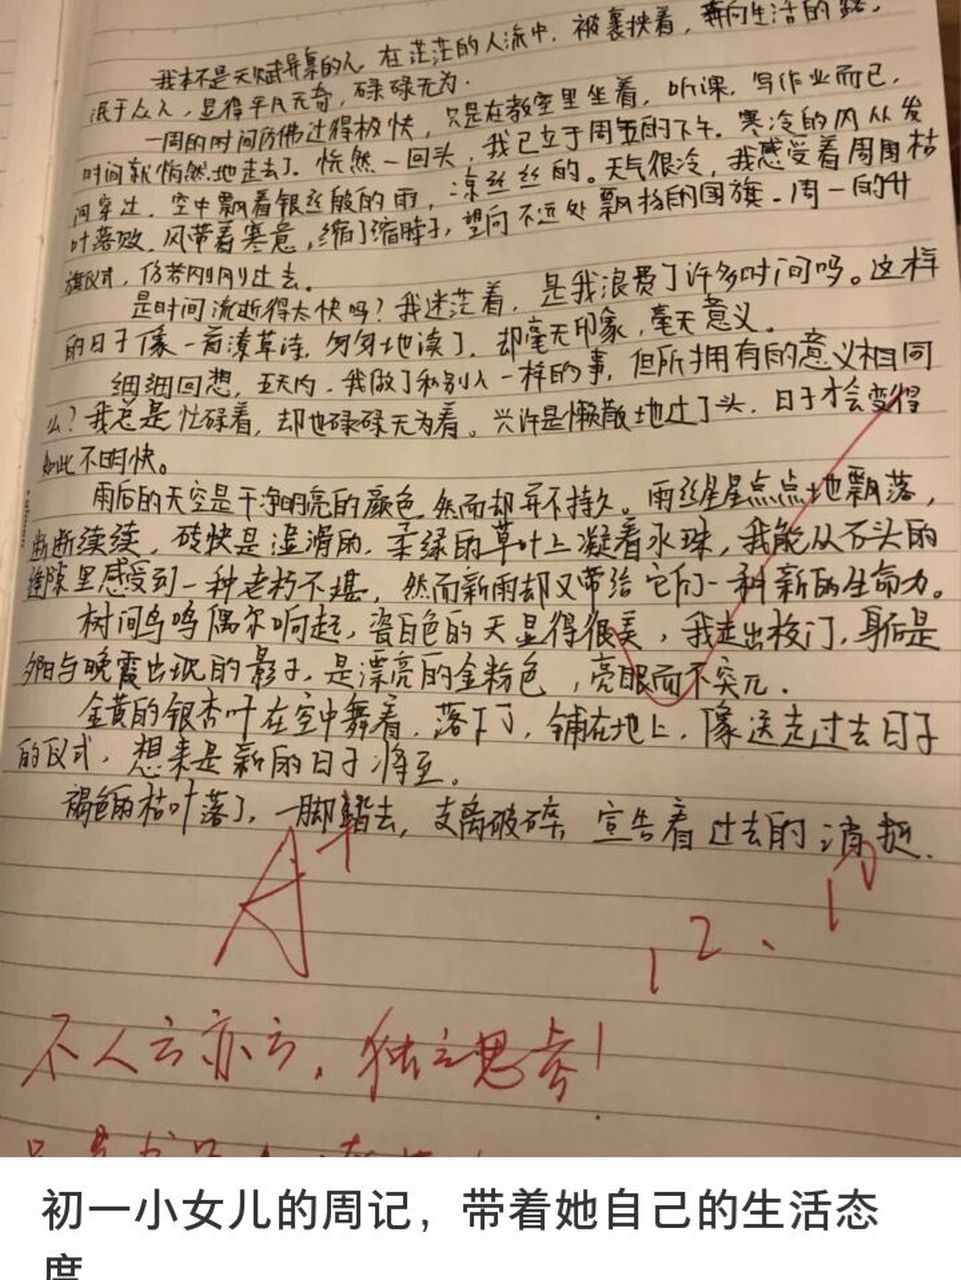 我本不是天赋异禀的人,在茫茫的人流中,被裹挟着,奔向生活的路,
泯于众人,显得平凡无奇,碌碌无为.
一周的时间仿佛过得极快,只是在教室里坐着,听课,写作业而已,
时间就悄然地走去了.恍然一回头,我已立于周五的下午.寒冷的风从发
间穿过,空中飘着银丝般的雨,凉丝丝的。天气很冷,我感受着周围枯
叶落败.风带着寒意,缩了缩脖子,望向不远处飘扬的国旗.周一的升
旗仪式,仿若刚刚过去。
是时间流逝得太快吗?我迷茫着,是我浪费了许多时间吗。这样
的日子像一首潦草诗,匆匆地读了,却毫无印象,毫无意义.
细细回想,五天内,我做了和别人一样的事,但所拥有的意义相同
么?我总是忙碌着,却也碌碌无为着。兴许是懒散地过了头,日子才会变得
如此不明快。
雨后的天空是干净明亮的颜色,然而却并不持久。雨丝星星点点地飘落,
断断续续,砖块是湿滑的,柔绿的草叶上凝着水珠,我能从石头的
缝隙里感受到一种老朽不堪,然而新雨却又带给它们一种新的生命力。
树间鸟鸣偶尔响起,瓷白色的天显得很美,我走出校门,身后是
夕阳与晚霞出现的影子,是漂亮的金粉色,亮眼而不突兀.
金黄的银杏叶在空中舞着,落下了,铺在地上,像送走过去日子
的仪式,想来是新的日子将至.
褐色的枯叶落了,一脚踏去,支离破碎,宣告着过去的消逝.
A+
12、10
不人云亦云,独立思考!
初一小女儿的周记，带着她自己的生活态
度